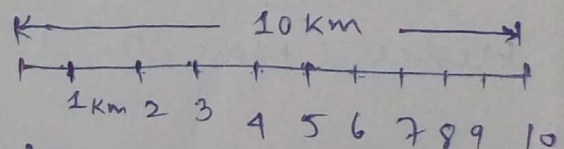 10 Km
1 Km 2 3 4 5 6 7 8 9 10